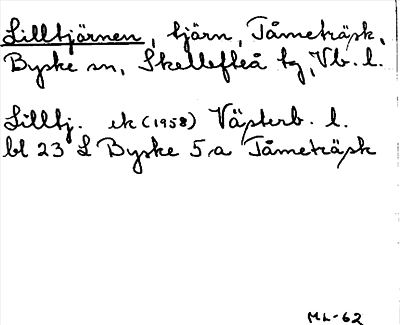 Lilltjärnen, tjärn, Tåmeträsk,
Byske sn, Skellefteå tg, Vb. l.
Lilltj. ek (1958) Västerb. l.
bl 23 L Byske 5 a Tåmeträsk
ML-62